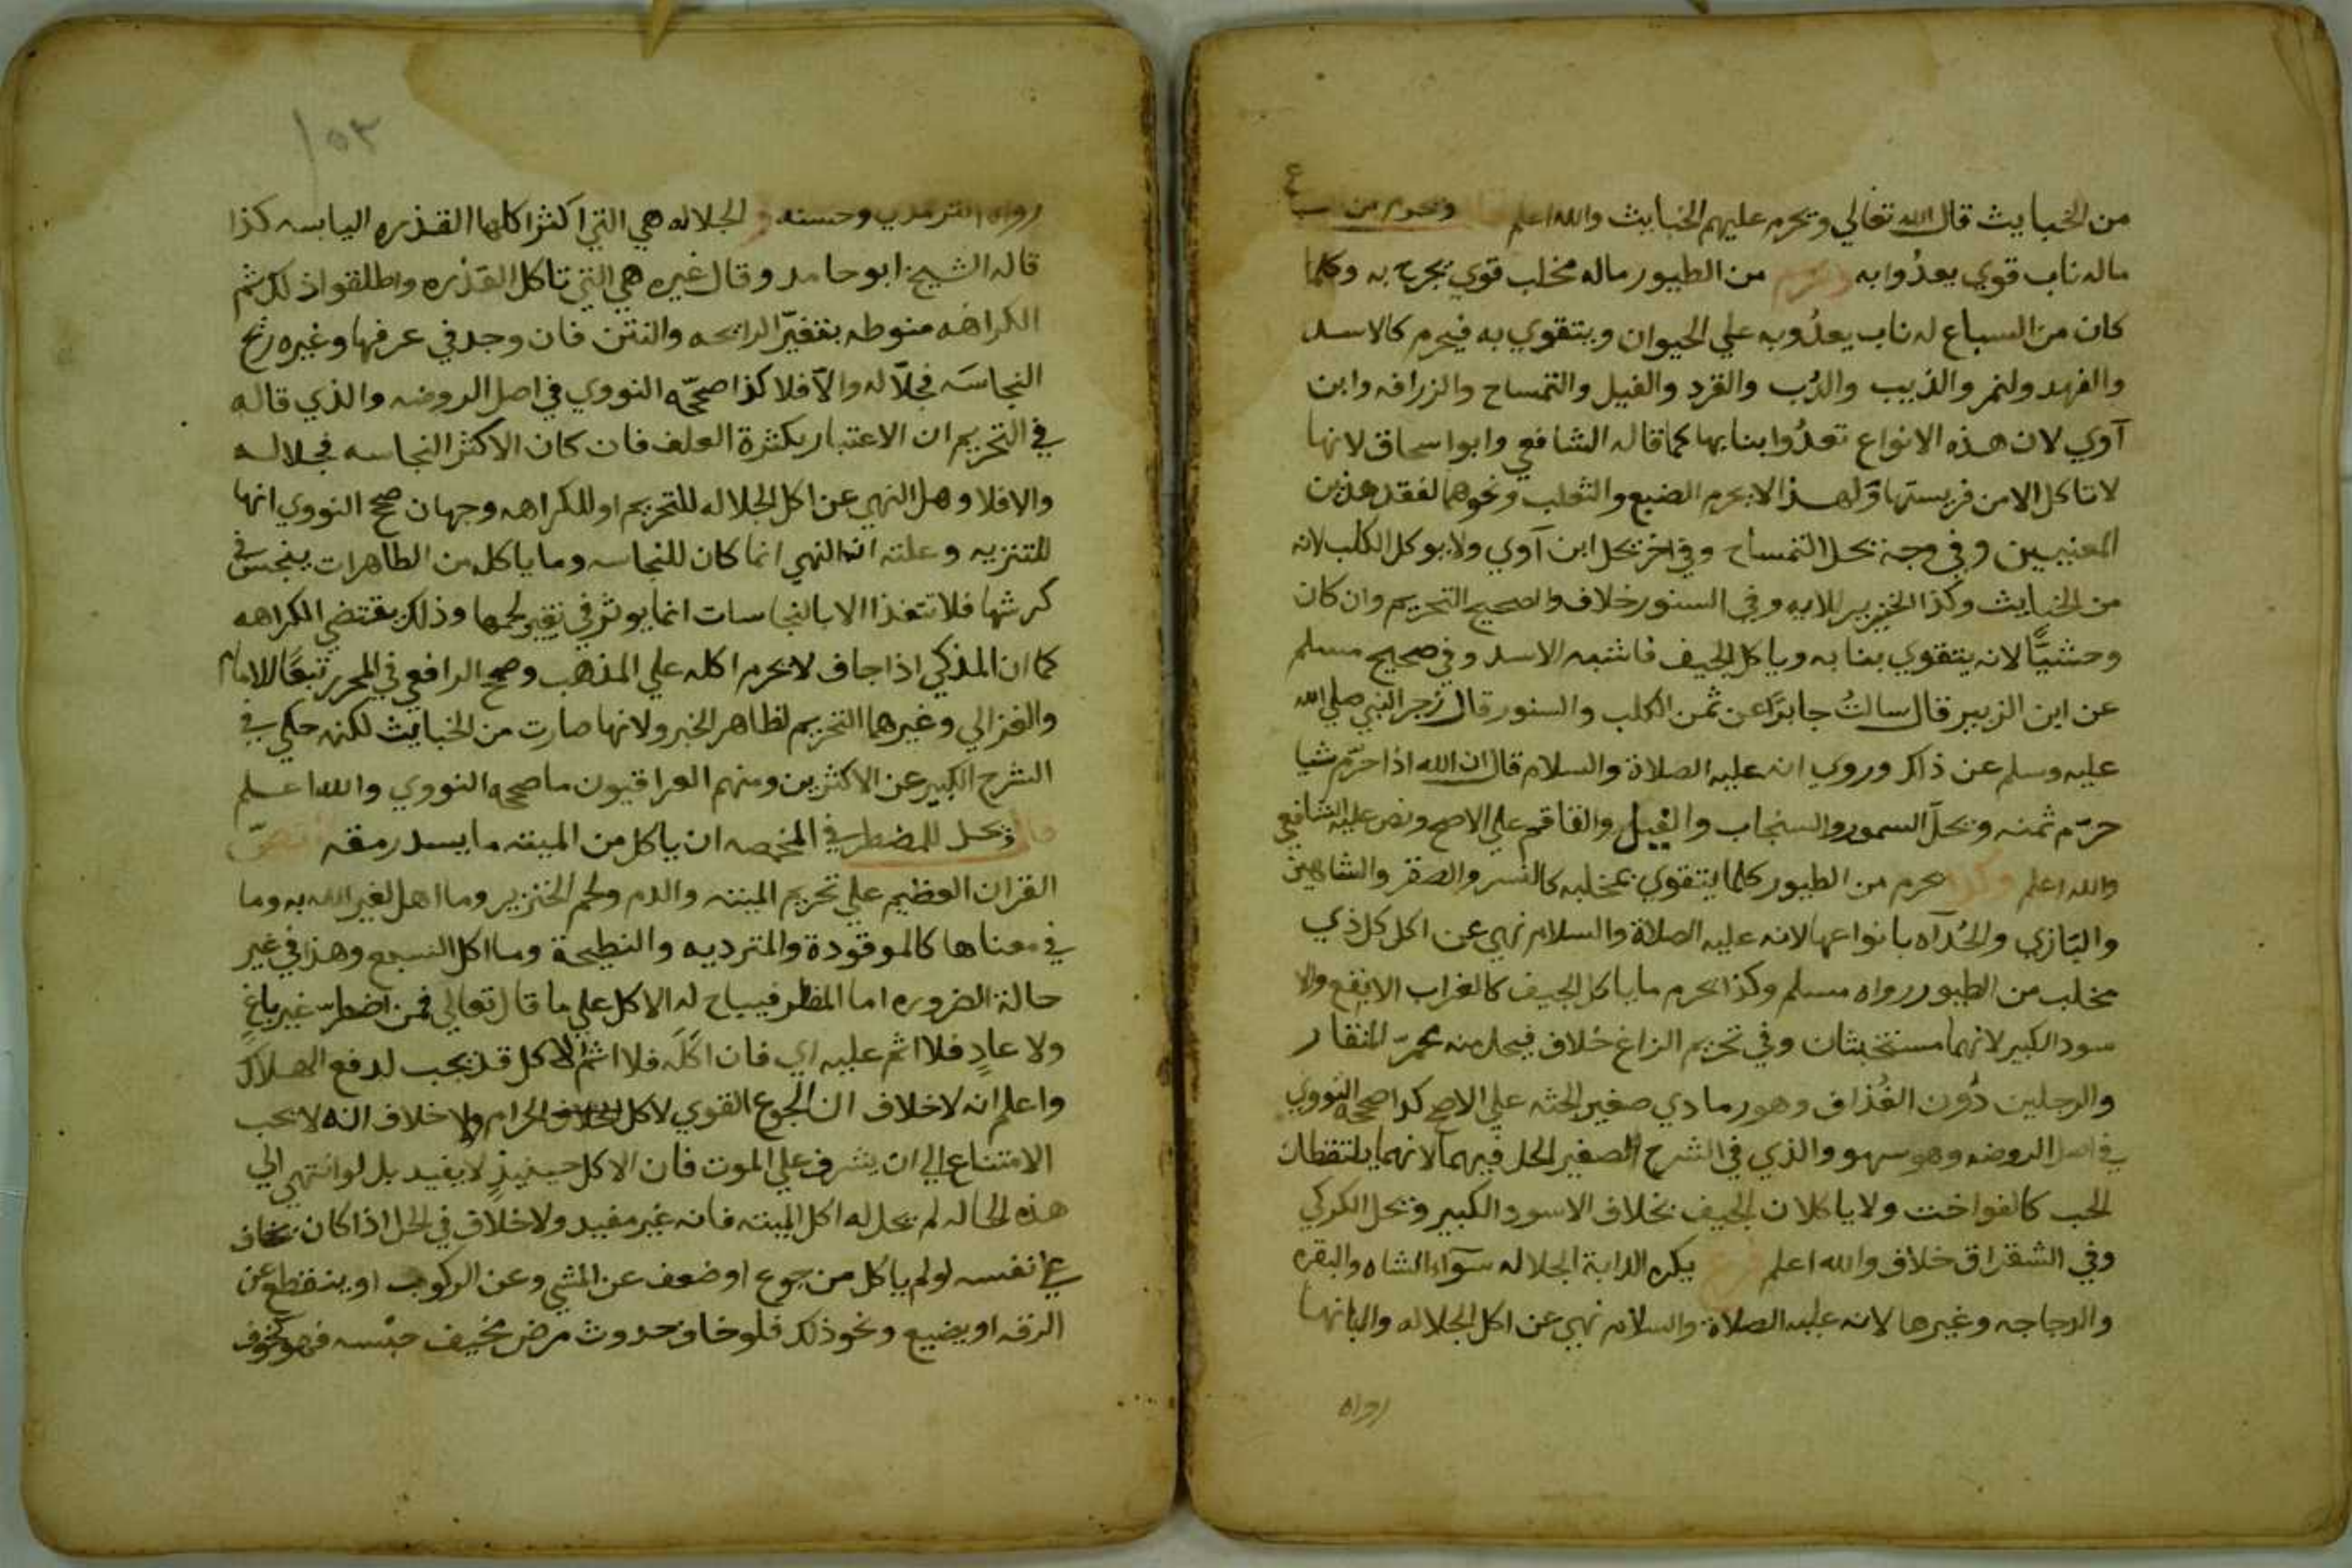 من الخبايث قال الله تعالي ويحرم عليهم الخبايث والله اعلم ويحرم من السباع
ماله ناب قوي يعدُوا به ويحرم من الطيور ماله مخلب قوي يجرح به وكلما
كان من السباع له ناب يعدُوبه علي الحيوان ويتقوي به فيحرم كالاسد
والفهد ولنمر والذيب والدُب والقرد والفيل والتمساح والزرافه وابن
آوي لان هذه الانواع تعدُوا بنابها كما قاله الشافعي وابو اسحاق لانها
لا تاكل الا من فريستها ولهذا لا يحرم الضبع والثعلب ونحوهما لفقد هذين
المعنيين وفي وجه يحل التمساح وفي اخر يحل ابن آوي ولا يوكل الكلب لانه
من الخبايث وكذا الخنزير للايه وفي السنور خلاف والصحيح التحريم وان كان
وحشيًّا لانه يتقوي بنابه وياكل الجيف فاشبه الاسد وفي صحيح مسلم
عن ابن الزبير قال سالتُ جابرًا عن ثمن الكلب والسنور قال زجر النبي صلي الله
عليه وسلم عن ذاك وروي انه عليه الصلاة والسلام قال ان الله اذا حرّم شيا
حرّم ثمنه ويحلّ السمور والسنجاب والفيل والقاقم علي الاصح ونص عليه الشافعي
والله اعلم وكذا يحرم من الطيور كلما يتقوي بمخلبه كالنسر والصقر والشاهين
والبَازي والحُدآه بانواعها لانه عليه الصلاة والسلام نهي عن اكل كل ذي
مخلب من الطيور رواه مسلم وكذا يحرم ما ياكل الجيف كالغراب الابقع والا
سود الكبير لانهما مستخبثان وفي تحريم الزاغ خلاف فيحل منه محمرّ المنقار
والرجلين دُون الغُذاف وهو رمادي صغير الجثه علي الاصح كذا صححه النووي
في اصل الروضه وهو سهو والذي في الشرح الصغير الحل فيهما لانهما يلتقطان
الحب كالفواخت ولا ياكلان الجيف بخلاف الاسود الكبير ويحل الكركي
وفي الشقراق خلاف والله اعلم فرع يكره الدابة الجلاله سوآء الشاه والبقره
والدجاجه وغيرها لانه عليه الصلاة والسلام نهي عن اكل الجلاله والبانها
رواه
١٥٣
رواه الترمذي وحسنه و الجلاله هي التي اكثر اكلها القذره اليابسه كذا
قاله الشيخ ابو حامد وقال غيره هي التي تاكل القذره واطلقوا ذلك ثم
الكراهه منوطه بتغيّر الرايحه والنتن فان وجد في عرقها وغيره ريح
النجاسَه فجلاّله والاّ فلا كذا صحّحه النووي في اصل الروضه والذي قاله
في التحريم ان الاعتبار بكثرة العلف فان كان الاكثر النجاسه فجلاله
والا فلا وهل النهي عن اكل الجلاله للتحريم او للكراهه وجهان صحح النووي انها
للتنزيه وعلته ان النهي انما كان للنجاسه وما ياكل من الطاهرات ينجس في
كرشها فلا تتغذا الا بالنجاسات انما يوثر في تغير لحمها وذلك يقتضي الكراهه
كما ان المذكي اذا جاف لا يحرم اكله علي المذهب وصحح الرافعي في المحرر تبعًا للامام
والغزالي وغيرهما التحريم لظاهر الخبر ولانها صارت من الخبايث لكنه حكي في
الشرح الكبير عن الاكثرين ومنهم العراقيون ما صححه النووي والله اعلم
قال ويحل للمضطر في المخمصه ان ياكل من الميته ما يسد رمقه نصّ
القران العظيم علي تحريم الميته والدم ولحم الخنزير وما اهل لغير الله به وما
في معناها كالموقودة والمترديه والنطيحة وما اكل السبع وهذا في غير
حالة الضروره اما المظطر فيباح له الاكل علي ما قال تعالي فمن اضطر غير باغٍ
ولا عادٍ فلا اثم عليه اي فان اكلَه فلا اثم الاكل قد يجب لدفع الهلاك
واعلم انه لا خلاف ان الجوع القوي لاكل الحرام ولا خلاف انه لا يجب
الامتناع الي ان يشرف علي الموت فان الاكل حينيذٍ لا يفيد بل لو انتهي الي
هذه الحاله لم يحل له اكل الميته فانه غير مفيد ولا خلاف في الحل اذا كان يخاف
علي نفسه لو لم ياكل من جوع او ضعف عن المشي وعن الركوب او ينقطع عن
الرفقه او يضيع ونحو ذلك فلو خاف حدوث مرض مخيف جنسه فهو كخوف